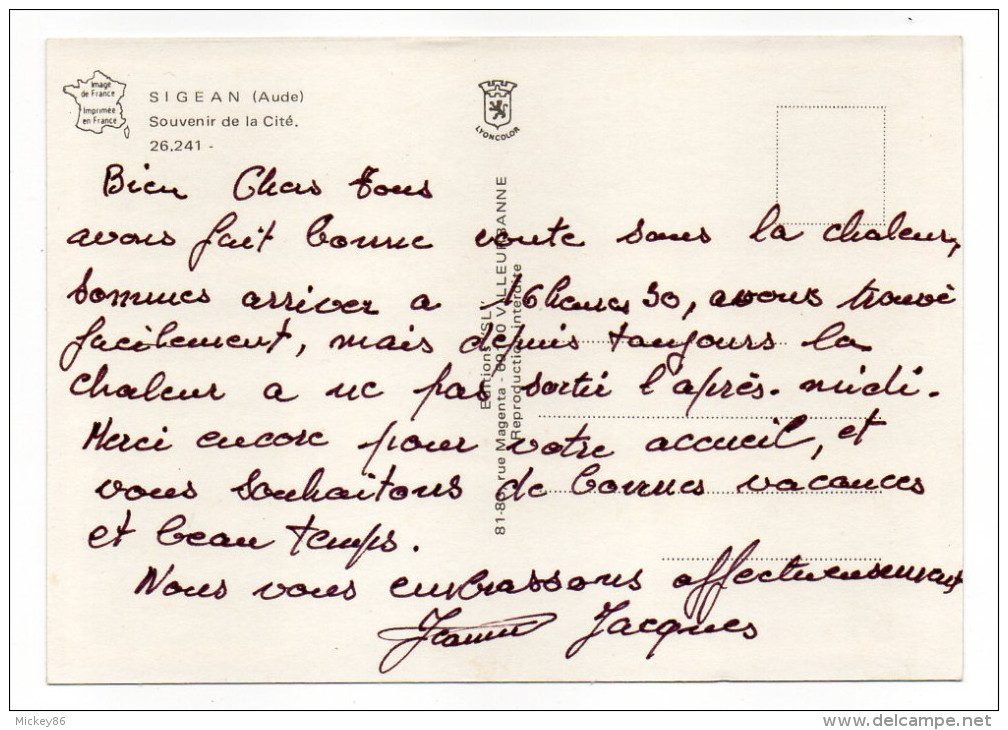 Image
de France
Imprimée
en France
SIGEAN (Aude)
Souvenir de la Cité.
26.241 -
LYONCOLOR
Editions "SL"
81-83, rue Magenta - 69100 VILLEURBANNE
Reproduction interdite
Bien Chers tous
avons fait bonne route sans la chaleur,
sommes arriver a 16 heures 30, avons trouvé
facilement, mais depuis toujours la
chaleur a uc pas sortie l'après-midi.
Merci encore pour votre accueil, et
vous souhaitons de bonnes vacances
et beau temps.
Nous vous embrassons affectueusement
Jacques
Mickey86
© delcampe.net